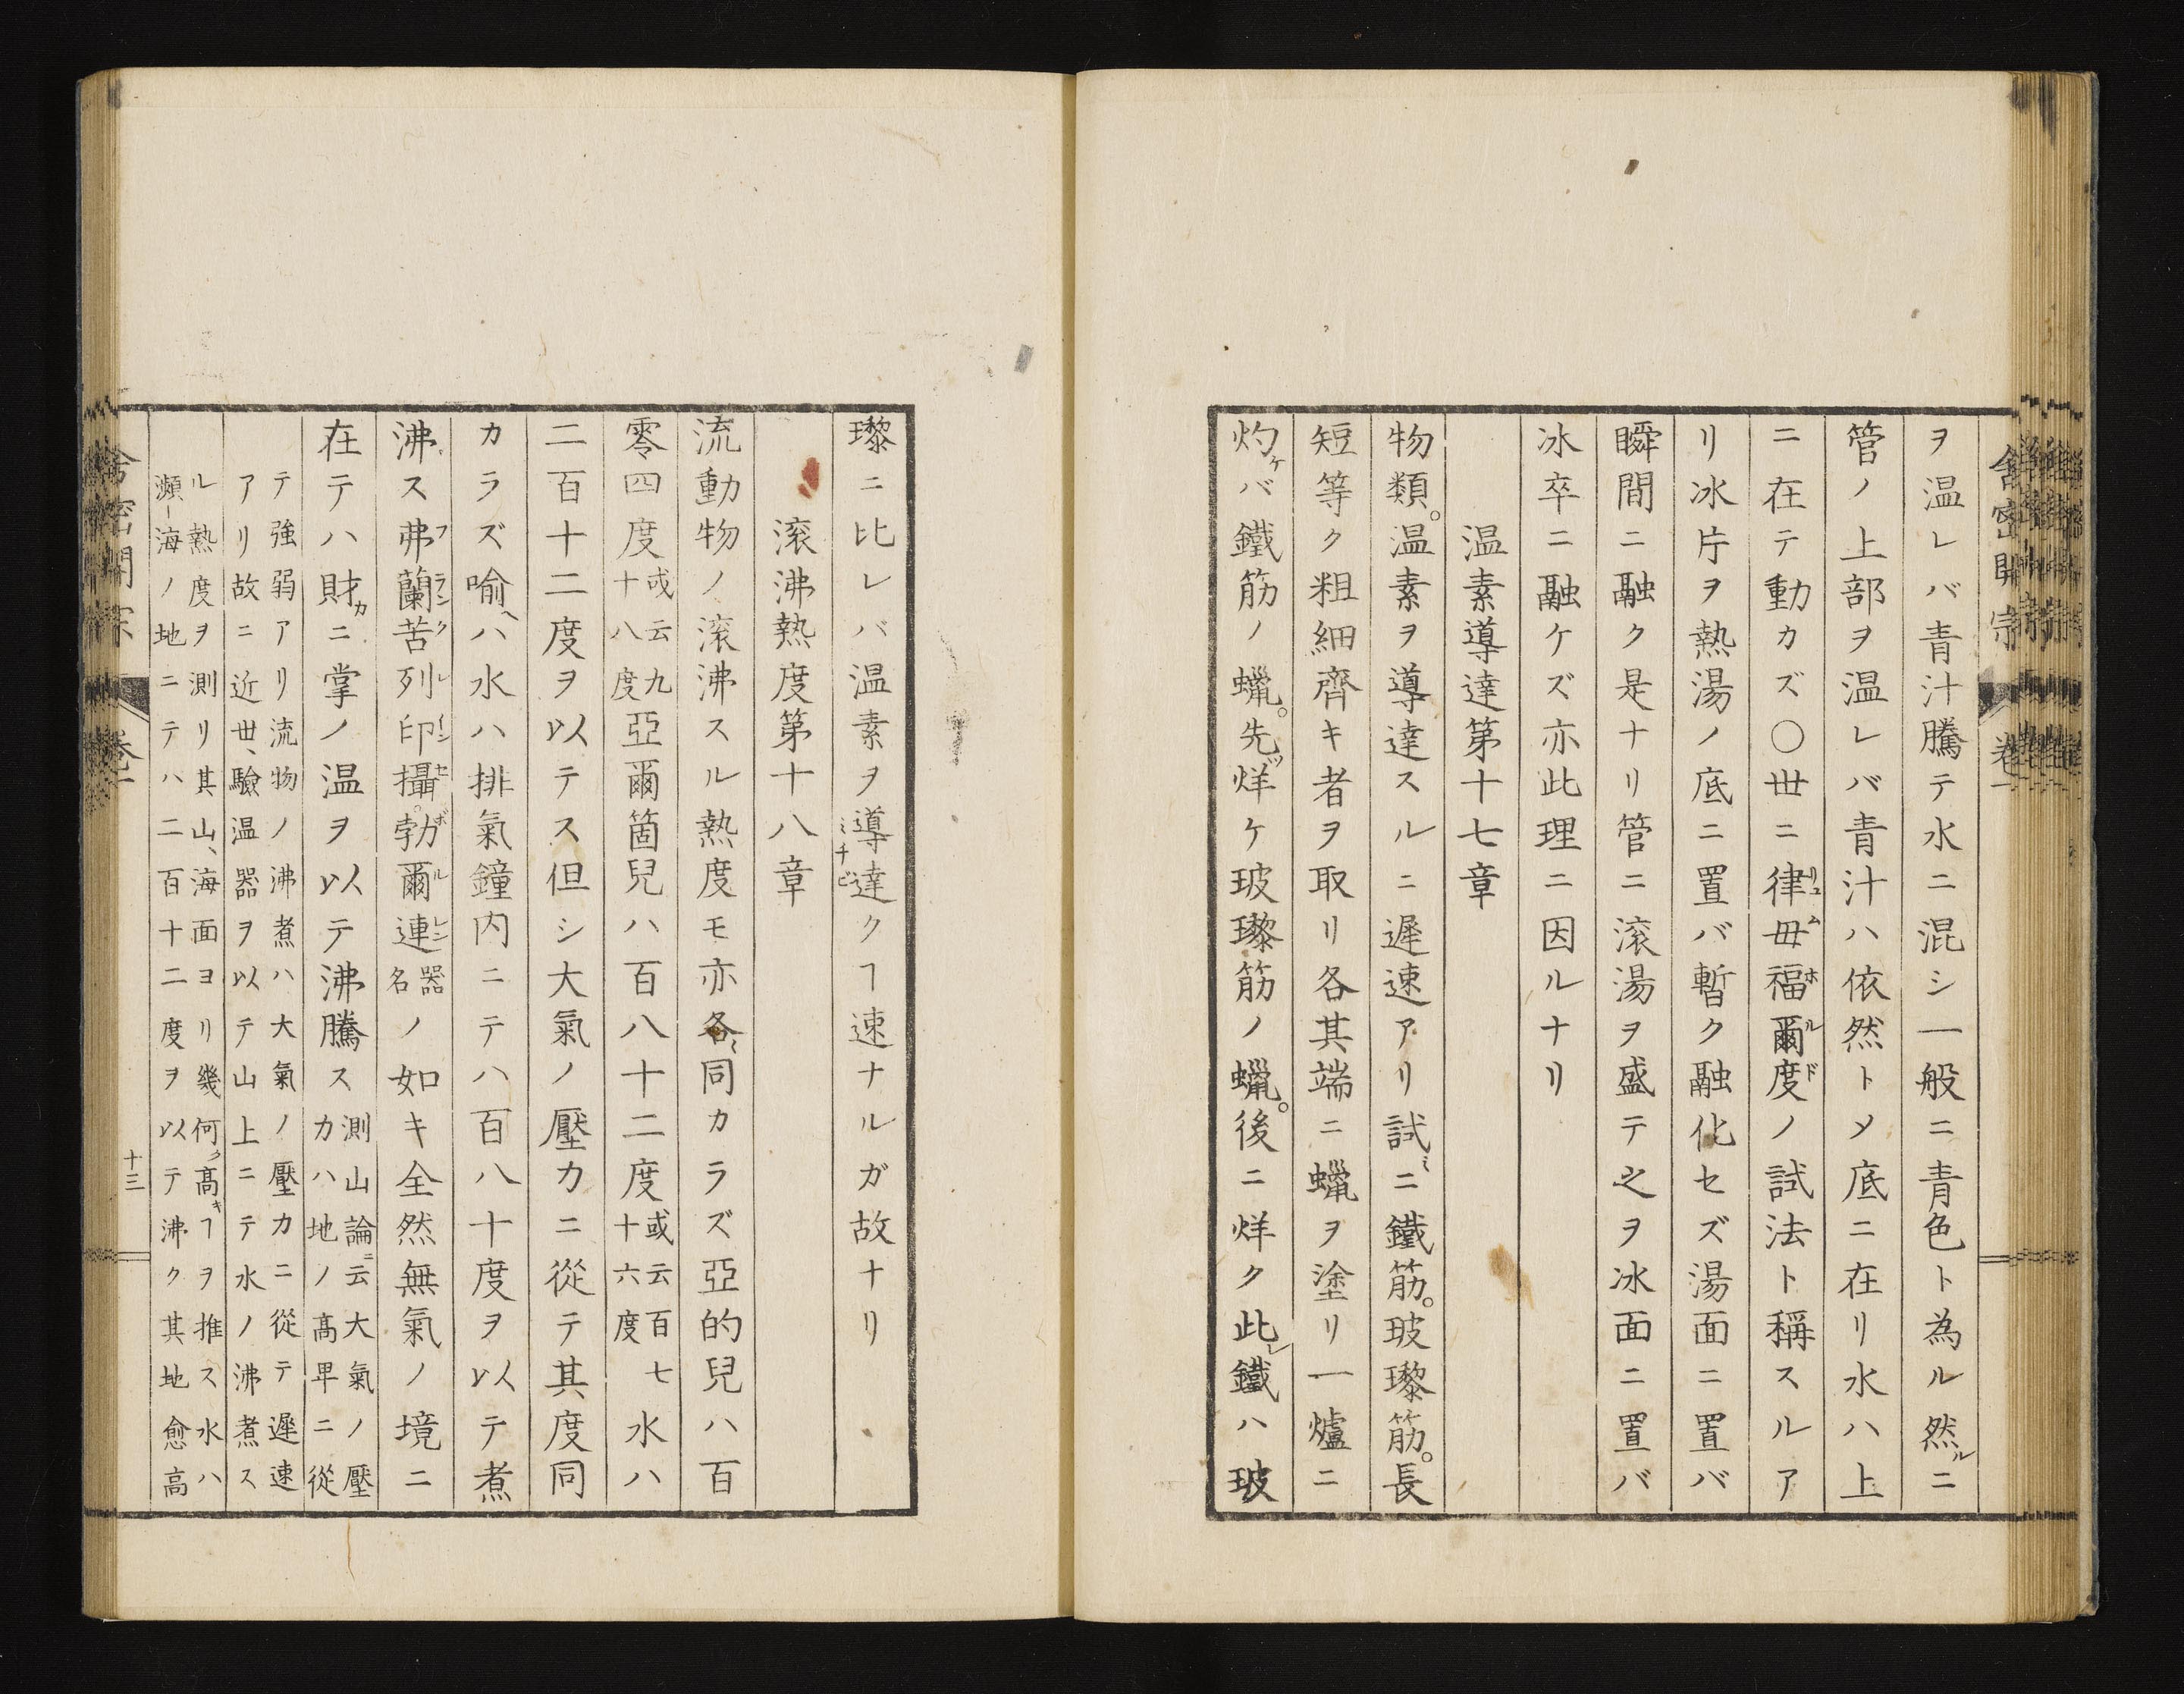 舎密開宗 卷一
ヲ温レバ青汁騰テ水ニ混シ一般ニ青色ト為ル然ルニ
管ノ上部ヲ温レバ青汁ハ依然トメ底ニ在リ水ハ上
ニ在テ動カズ〇世ニ律毋福爾度ノ試法ト稱スルア
リュムホルド
リ冰片ヲ熱湯ノ底ニ置バ暫ク融化セズ湯面ニ置バ
瞬間ニ融ク是ナリ管ニ滚湯ヲ盛テ之ヲ冰面ニ置バ
冰卒ニ融ケズ亦此理ニ因ルナリ
温素導達第十七章
物類。温素ヲ導達スルニ遲速アリ試ミニ鐵筋。玻瓈筋。長
短等ク粗細齊キ者ヲ取リ各其端ニ蠟ヲ塗リ一爐ニ
灼ケバ鐵筋ノ蠟。先ツ烊ケ玻瓈筋ノ蠟。後ニ烊ク此レ鐵ハ玻
瓈ニ比レバ温素ヲ導達クヿ速ナルガ故ナリ
ミチビ
滚沸熱度第十八章
流動物ノ滚沸スル熱度モ亦各〻同カラズ亞的兒ハ百
零四度或云九十八度亞爾箇兒ハ百八十二度或云百七十六度水ハ
二百十二度ヲ以テス但シ大氣ノ壓力ニ從テ其度同
カラズ喻ヘハ水ハ排氣鐘内ニテハ百八十度ヲ以テ煮
沸ス弗蘭苦列印攝。勃爾連器名ノ如キ全然無氣ノ境ニ
フランクレインセボルレン
在テハ財カニ掌ノ温ヲ以テ沸騰ス測山論ニ云大氣ノ壓
力ハ地ノ髙卑ニ從
テ強弱アリ流物ノ沸煮ハ大氣ノ壓力ニ從テ遲速
アリ故ニ近世、驗温器ヲ以テ山上ニテ水ノ沸煮ス
ル熱度ヲ測リ其山、海面ヨリ幾何ク髙キヿヲ推ス水ハ
瀕海ノ地ニテハ二百十二度ヲ以テ沸ク其地愈高
舎密開宗 卷一 十三